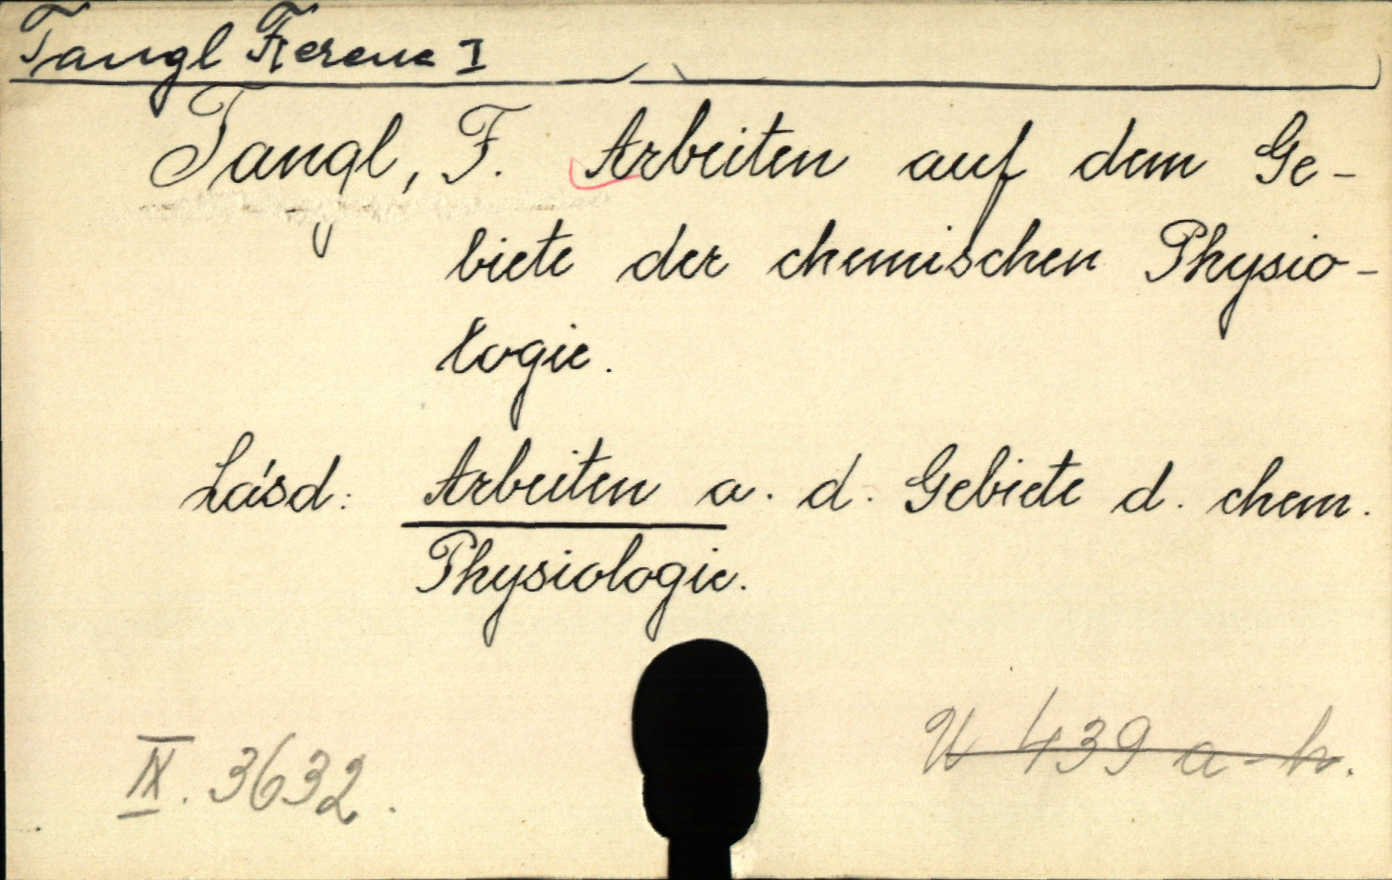 Tangl Ferenc I
Tangl, F. Arbeiten auf dem Ge-
biete der chemischen Physio-
logie.
Lásd: Arbeiten a. d. Gebiete d. chem.
Physiologie.
IX. 3632.
439 a-h.